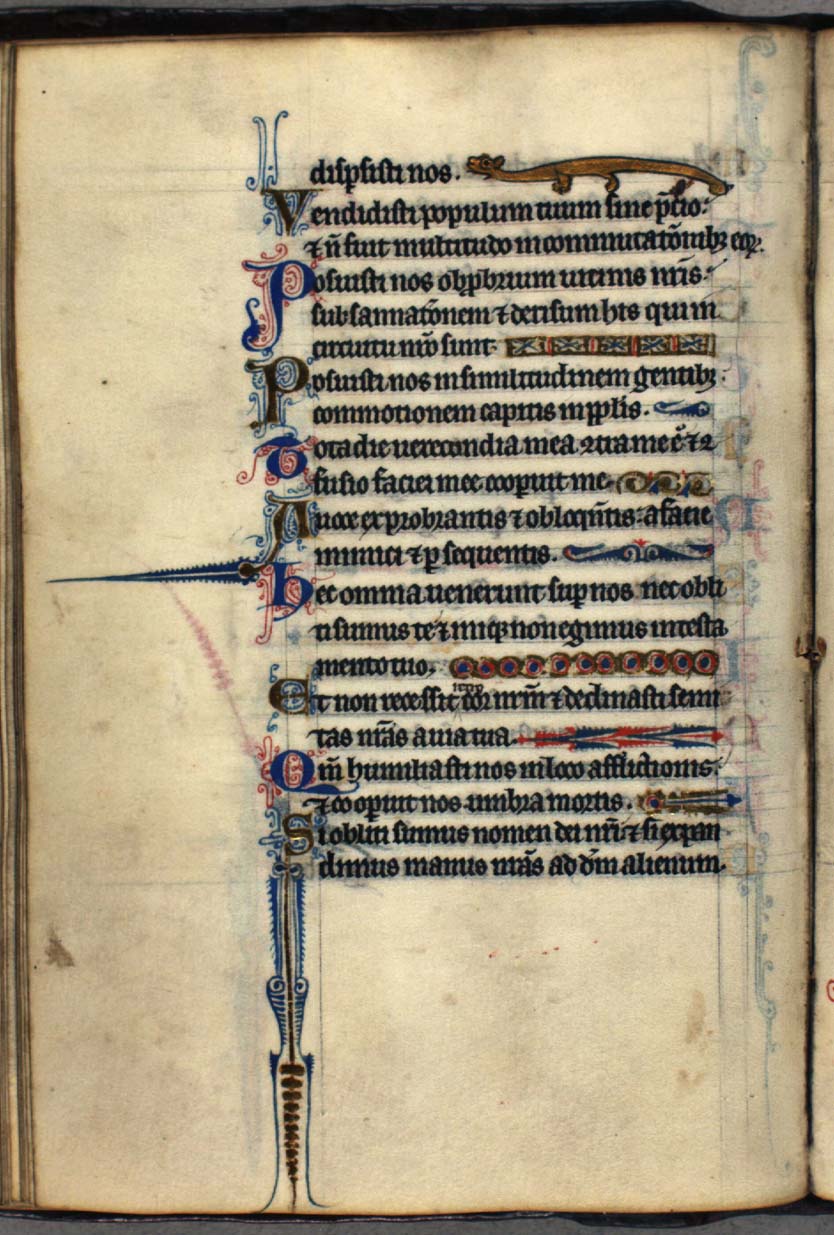 disp̱sisti nos.
Vendidisti populum tuum sine p̄cio:
⁊ n̄ fuit multitudo in commutatōnibꝫ eoꝝ.
Posuisti nos obp̱brium uicinis nr̄is:
subsannatōnem ⁊ derisum his qui in
circuitu nr̄o sunt.
Posuisti nos in similitudinem gentibꝫ:
commotionem capitis in pp̄lis.
Tota die uerecundia mea ꝯtra me ē ⁊ ꝯ
fusio faciei mee cooperuit me.
A uoce exprobrantis ⁊ obloquētis: a facie
inimici ⁊ ꝑsequentis.
Hec omnia uenerunt sup̱ nos nec obli
ti sumus te ⁊ iniq̄ non egimus in testa
mento tuo.
Et non recessit retro cor nr̄m ⁊ declinasti semi
tas nr̄as a uia tua.
Qm̄ humiliasti nos in loco afflictionis:
⁊ cooperuit nos umbra mortis.
Si obliti sumus nomen dei nr̄i ⁊ si expan
dimus manus nr̄as ad dm̄ alienum.